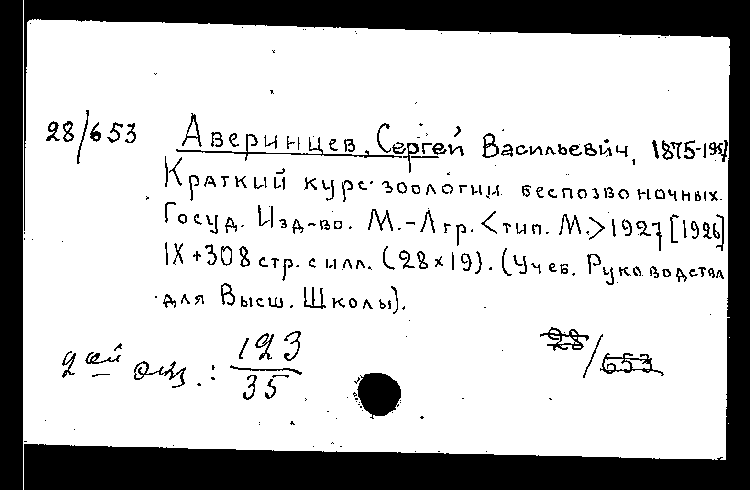 28/653 Аверинцев, Сергей Васильевич, 1875-1957
Краткий курс зоологии беспозвоночных.
Госуд. Изд-во. М.-Лгр. <тип. М.> 1927 [1926]
IX+308 стр. с илл. (28×19). (Учеб. Руководства
для Высш. Школы).
2ой экз.: 123/35
28/653